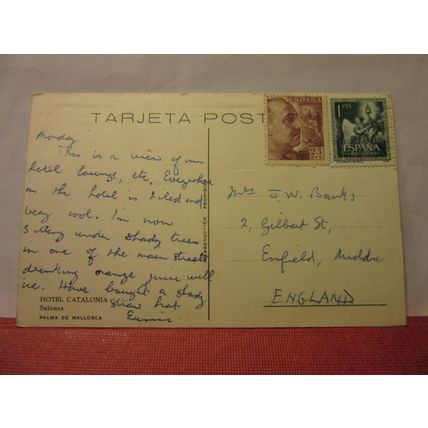 TARJETA POST
ESPAÑA
1 PTA
ESPAÑA
Monday
This is a view of our
hotel lounge, etc, Everywhere
in the hotel is tiled and
very cool. I'm now
sitting under shady trees
in one of the main streets
drinking orange juice with
ice. Have bought a shady
straw hat
HOTEL CATALONIA
Salones
PALMA DE MALLORCA
Mrs J. W. Banks
2, Gilbert St,
Enfield, Middx.
ENGLAND